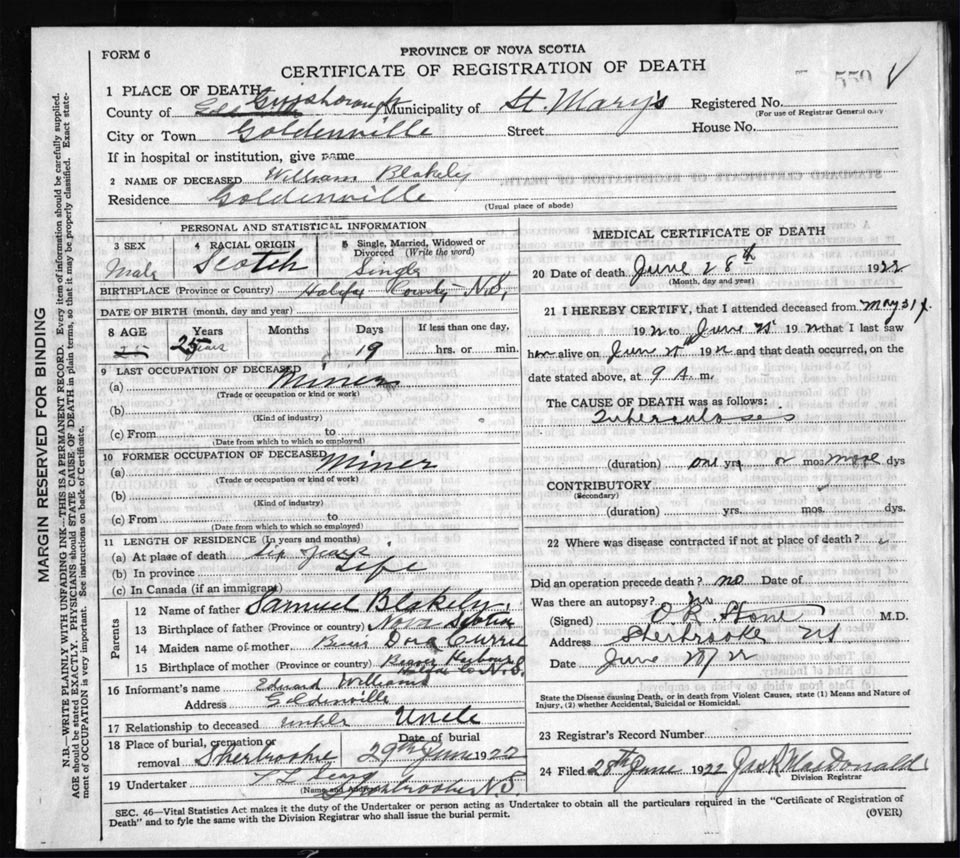 FORM 6
PROVINCE OF NOVA SCOTIA
CERTIFICATE OF REGISTRATION OF DEATH
559
1 PLACE OF DEATH
County of Guysborough Municipality of St. Mary's Registered No.
(For use of Registrar General only
City or Town Goldenville Street House No.
If in hospital or institution, give name
2 NAME OF DECEASED William Blakely
Residence Goldenville
(Usual place of abode)
PERSONAL AND STATISTICAL INFORMATION
3 SEX Male
4 RACIAL ORIGIN Scotch
5 Single, Married, Widowed or Divorced (Write the word) Single
BIRTHPLACE (Province or Country) Halifax County N.S,
DATE OF BIRTH (month, day and year)
8 AGE Years Months Days If less than one day,
25 years 19 hrs. or min.
9 LAST OCCUPATION OF DECEASED
(a) Miner
(Trade or occupation or kind or work)
(b)
(Kind of industry)
(c) From to
(Date from which to which so employed)
10 FORMER OCCUPATION OF DECEASED
(a) Miner
(Trade or occupation or kind of work)
(b)
(Kind of industry)
(c) From to
(Date from which to which so employed)
11 LENGTH OF RESIDENCE (In years and months)
(a) At place of death Six years
(b) In province Life
(c) In Canada (if an immigrant)
Parents
12 Name of father Samuel Blakely
13 Birthplace of father (Province or country) Nova Scotia
14 Maiden name of mother Dora Currie
15 Birthplace of mother (Province or country) Harbour N.S.
16 Informant's name Edward Williams
Address Goldenville
17 Relationship to deceased unkle Uncle
18 Place of burial, cremation or removal Sherbrooke
Date of burial 29th June 1922
19 Undertaker
(Name and Address) Sherbrooke N.S
MEDICAL CERTIFICATE OF DEATH
20 Date of death June 28th 1922
(Month, day and year)
21 I HEREBY CERTIFY, that I attended deceased from May 31
19 to June 19 that I last saw
him alive on June 19 and that death occurred, on the
date stated above, at 9 A. m.
The CAUSE OF DEATH was as follows:
Tuberculosis
(duration) one yrs. or mos. more dys
CONTRIBUTORY
(Secondary)
(duration) yrs. mos. dys.
22 Where was disease contracted if not at place of death?
Did an operation precede death? no Date of
Was there an autopsy? no
(Signed) M.D.
Address Sherbrooke NS
Date June 22
State the Disease causing Death, or in death from Violent Causes, state (1) Means and Nature of
Injury, (2) whether Accidental, Suicidal or Homicidal.
23 Registrar's Record Number
24 Filed 28th June 1922 MacDonald
Division Registrar
SEC. 46—Vital Statistics Act makes it the duty of the Undertaker or person acting as Undertaker to obtain all the particulars required in the "Certificate of Registration of
Death" and to fyle the same with the Division Registrar who shall issue the burial permit.
(OVER)
MARGIN RESERVED FOR BINDING
N.B.—WRITE PLAINLY WITH UNFADING INK—THIS IS A PERMANENT RECORD. Every item of information should be carefully supplied.
AGE should be stated EXACTLY. PHYSICIANS should STATE CAUSE OF DEATH in plain terms, so that it may be properly classified. Exact state-
ment of OCCUPATION is very important. See instructions on back of Certificate.